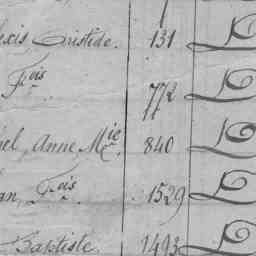 exis Aristide. 131
Fois 772
el, Anne Mie. 840
an, Fois. 1529
Baptiste 1493